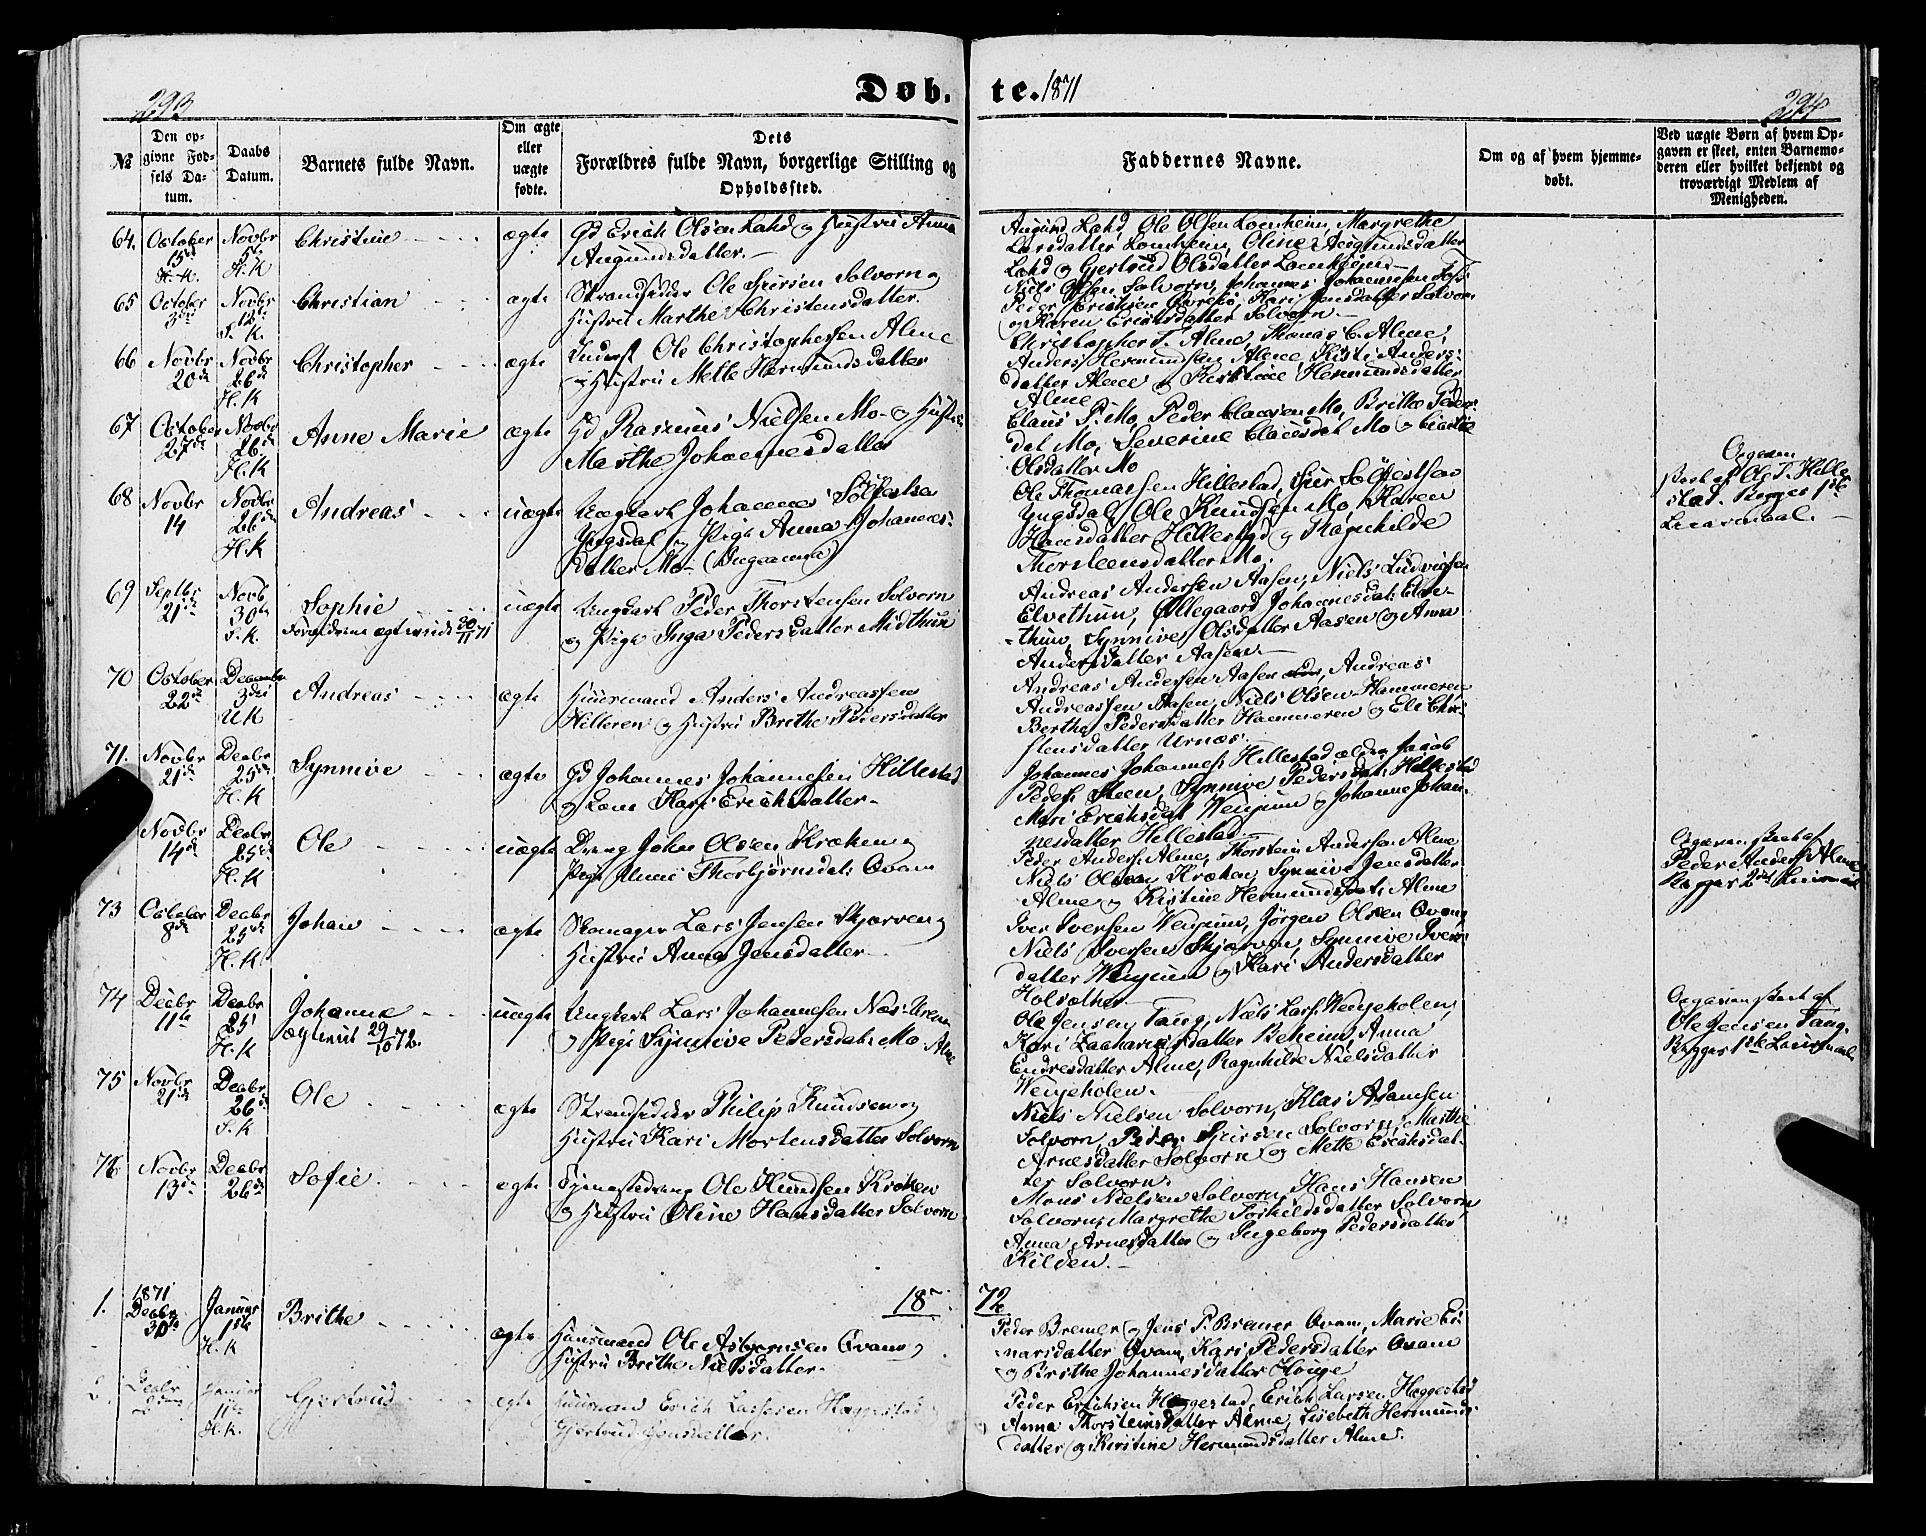 293
Døb. te. 1871
294
№
Den op-
givne Fød-
sels Da-
tum.
Daabs
Datum.
Barnets fulde Navn.
Om ægte
eller
uægte
fødte.
Dets
Forældres fulde Navn, borgerlige Stilling og
Opholdssted.
Faddernes Navne.
Om og af hvem hjemme-
døbt.
Ved uægte Børn af hvem Op-
gaven er skeet, enten Barnemo-
deren eller hvilket bekjendt og
troværdigt Medlem af
Menigheden.
64. October 15de Novbr 5te H.K Christine ægte
Gd Erich Olsen Lahd og Hustru Anna
Augundsdatter.
Augund Lahd, Ole Olsen Lomheim, Margrethe
Larsdatter Lomheim, Oline Augundsdatter
Lahd og Gjertrud Olsdatter
65 October 3die Novbr 12te S.K. Christian ægte
Strandsidder Ole Sjursen Solvorn og
Hustru Marthe Christensdatter.
Niels Olsen Solvorn, Johannes Johannessen
Peder Erichsen Kari Jensdatter Solvorn
og Karen Erichsdatter Solvorn.
66 Novbr 20de Novbr 26de H.K Christopher ægte
Inderst Ole Christophersen Alme
og Hustru Mette Hermundsdatter
Christopher T. Alme, Thomas C. Alme,
Anders Hermundsen Alme, Kisti Anders-
datter Alme og Kirstine Hermundsdatter
Alme
67 October 27de Novbr 26de H.K Anne Marie ægte
Gd Rasmus Nielsen Mo og Hustru
Marthe Johannesdatter
Claus P. Mo, Peder Clausen Mo, Brithe Peders-
dat Mo, Severine Clausdat Mo og
Olsdatter Mo
68 Novbr 14 Novbr 26de H.K Andreas uægte
Ungkarl Johannes Sølfestsen
Yngsdal og Pige Anna Johannes-
datter Mo (Begaarne)
Ole Thomassen Hillestad, Sjur Sølfestsen
Yngsdal, Ole Knudsen Mo, Karen
Hansdatter Hillestad og Ragnhilde
Thorsteensdatter Mo.
Opgaven
skeet af Ole T. Hille-
stad. Begges 1ste
Leiermaal.
69 Septbr 21de Novb 30te S.K. Sophie uægte
Forældrene ægteviede 30/11 71
Ungkarl Peder Thorstensen Solvorn
og Pige Inga Pedersdatter Midthun
Andreas Andersen Aasen, Niels Ludvigsen
Elvethun, Øllegaard Johannesdat: Elve-
thun, Synnive Olsdatter Aasen og Anna
Andersdatter Aasen
70 October 22de December 3die U.K Andreas ægte
Huusmand Anders Andreassen
Hilleren og Hustru Brithe Pedersdatter
Andreas Andersen Aasen, Andreas
Andreassen Aasen, Niels Olsen Hammeren
Berthe Pedersdatter Hammeren og Eli Chri-
stensdatter Urnæs.
71. Novbr 21de Decbr 25de H.K Synnive ægte
Gd Johannes Johannesen Hillestad
og Kone Kari Erichsdatter
Johannes Johannes: Hillestad ældre Jacob
Peders: Steen, Synnive Pedersdat: Hillestad
Mari Erichsdat Venjum og Johanne Johan-
nesdatter Hillestad
Novbr 14de Decbr 25de H.K Ole uægte
Dreng John Olsen Kræken og
Pige Anne Thorbjørnsdat: Qvam
Peder Anders: Alme, Thorstein Andersen Alme
Niels Olsen Kræken, Synnive Jensdatter
Alme og Kirstine Hermundsdat: Alme
Opgaven skeet af
Peder Anders: Alme
Begges 2det Leiermaal
73 October 8de Decbr 25 H.K Johan ægte
Skomager Lars Jensen Skjerven og
Hustru Anna Jensdatter
Iver Iversen Venjum, Jørgen Olsen Qvam,
Niels Iversen Skjerven, Synnive Ivers-
datter Venjum og Kari Andersdatter
Holsether
74 Decbr 11te Decbr 25 H.K Johanne uægte
ægteviet 29/10 72.
Ungkarl Lars Johannesen Næs
og Pige Synnive Pedersdat: Mo Alme
Ole Jensen Tang, Niels Lars: Venjeholen,
Kari Zachariasdatter Beheim, Anna
Endresdatter Alme, Ragnhilde Nielsdatter
Venjeholen.
Opgaven skeet af
Ole Jensen Tang.
Begges 1ste Leiermaal
75 Novbr 21de Decbr 26de S.K Ole ægte
Strandsidder Philip Knudsen og
Hustru Kari Mortensdatter Solvorn
Niels Nielsen Solvorn, Klas Adamsen
Solvorn, Peder Sjursen Solvorn, Marthe
Arnesdatter Solvorn og Mette Erichsdat-
ter Solvorn.
76 Novbr 13de Decbr 26de Sofie ægte
Tjenestedreng Ole Knudsen Kroken
og Hustru Oline Hansdatter Solvorn
Mons Nielsen Solvorn, Hans Hansen
Solvorn, Margrethe Torkildsdatter Solvorn
Anna Arnesdatter og Ingeborg Pedersdatter
Kilden.
1872
1. 1871 Decbr 30te Januar 1ste H.K Brithe ægte
Huusmand Ole Asbjørnsen Qvam og
Hustru Brithe Nielsdatter.
Peder Bremer og Jens P. Bremer Qvam, Marie Ei-
narsdatter Qvam, Kari Pedersdatter Qvam
og Brithe Johannesdatter Houge
2. Decbr Januar H.K. Gjertrud ægte
Huusmand Erich Larsen Heggestad
Gjertrud Jensdatter.
Peder Erichsen Heggestad, Erich Larsen Heggestad
Anna Thorsteinsdatter Alme, Lisebeth Hermunds-
datter og Kirstine Hermundsdatter Alme.